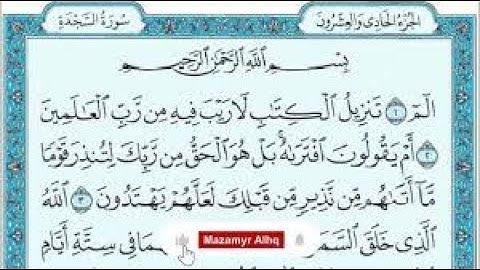 الجزء الحادي والعشرون
سورة السجدة
بِسْمِ ٱللَّهِ ٱلرَّحْمَٰنِ ٱلرَّحِيمِ
الٓمٓ ١ تَنزِيلُ ٱلْكِتَٰبِ لَا رَيْبَ فِيهِ مِن رَّبِّ ٱلْعَٰلَمِينَ
٢ أَمْ يَقُولُونَ ٱفْتَرَىٰهُ ۚ بَلْ هُوَ ٱلْحَقُّ مِن رَّبِّكَ لِتُنذِرَ قَوْمًا
مَّآ أَتَىٰهُم مِّن نَّذِيرٍ مِّن قَبْلِكَ لَعَلَّهُمْ يَهْتَدُونَ ٣ ٱللَّهُ
ٱلَّذِى خَلَقَ فِى سِتَّةِ أَيَّامٍ
Mazamyr Alhq